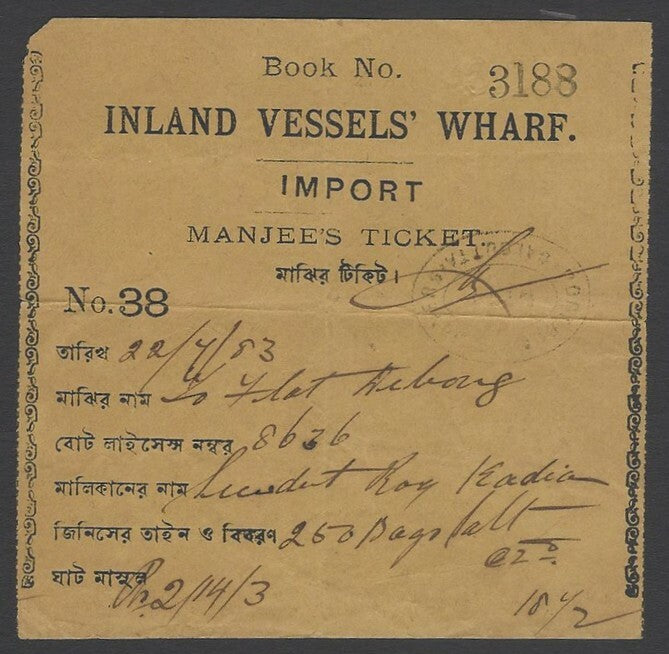 Book No. 3188
INLAND VESSELS' WHARF.
IMPORT
MANJEE'S TICKET.
মাঝির টিকিট।
No. 38
তারিখ 22/7/83
মাঝির নাম Flat
বোট লাইসেন্স নম্বর 8636
মালিকানের নাম Roy Kadia
জিনিসের তাইন ও বিবরণ 250 Bags Salt
@ 2
ঘাট মাসুল 2/14/3